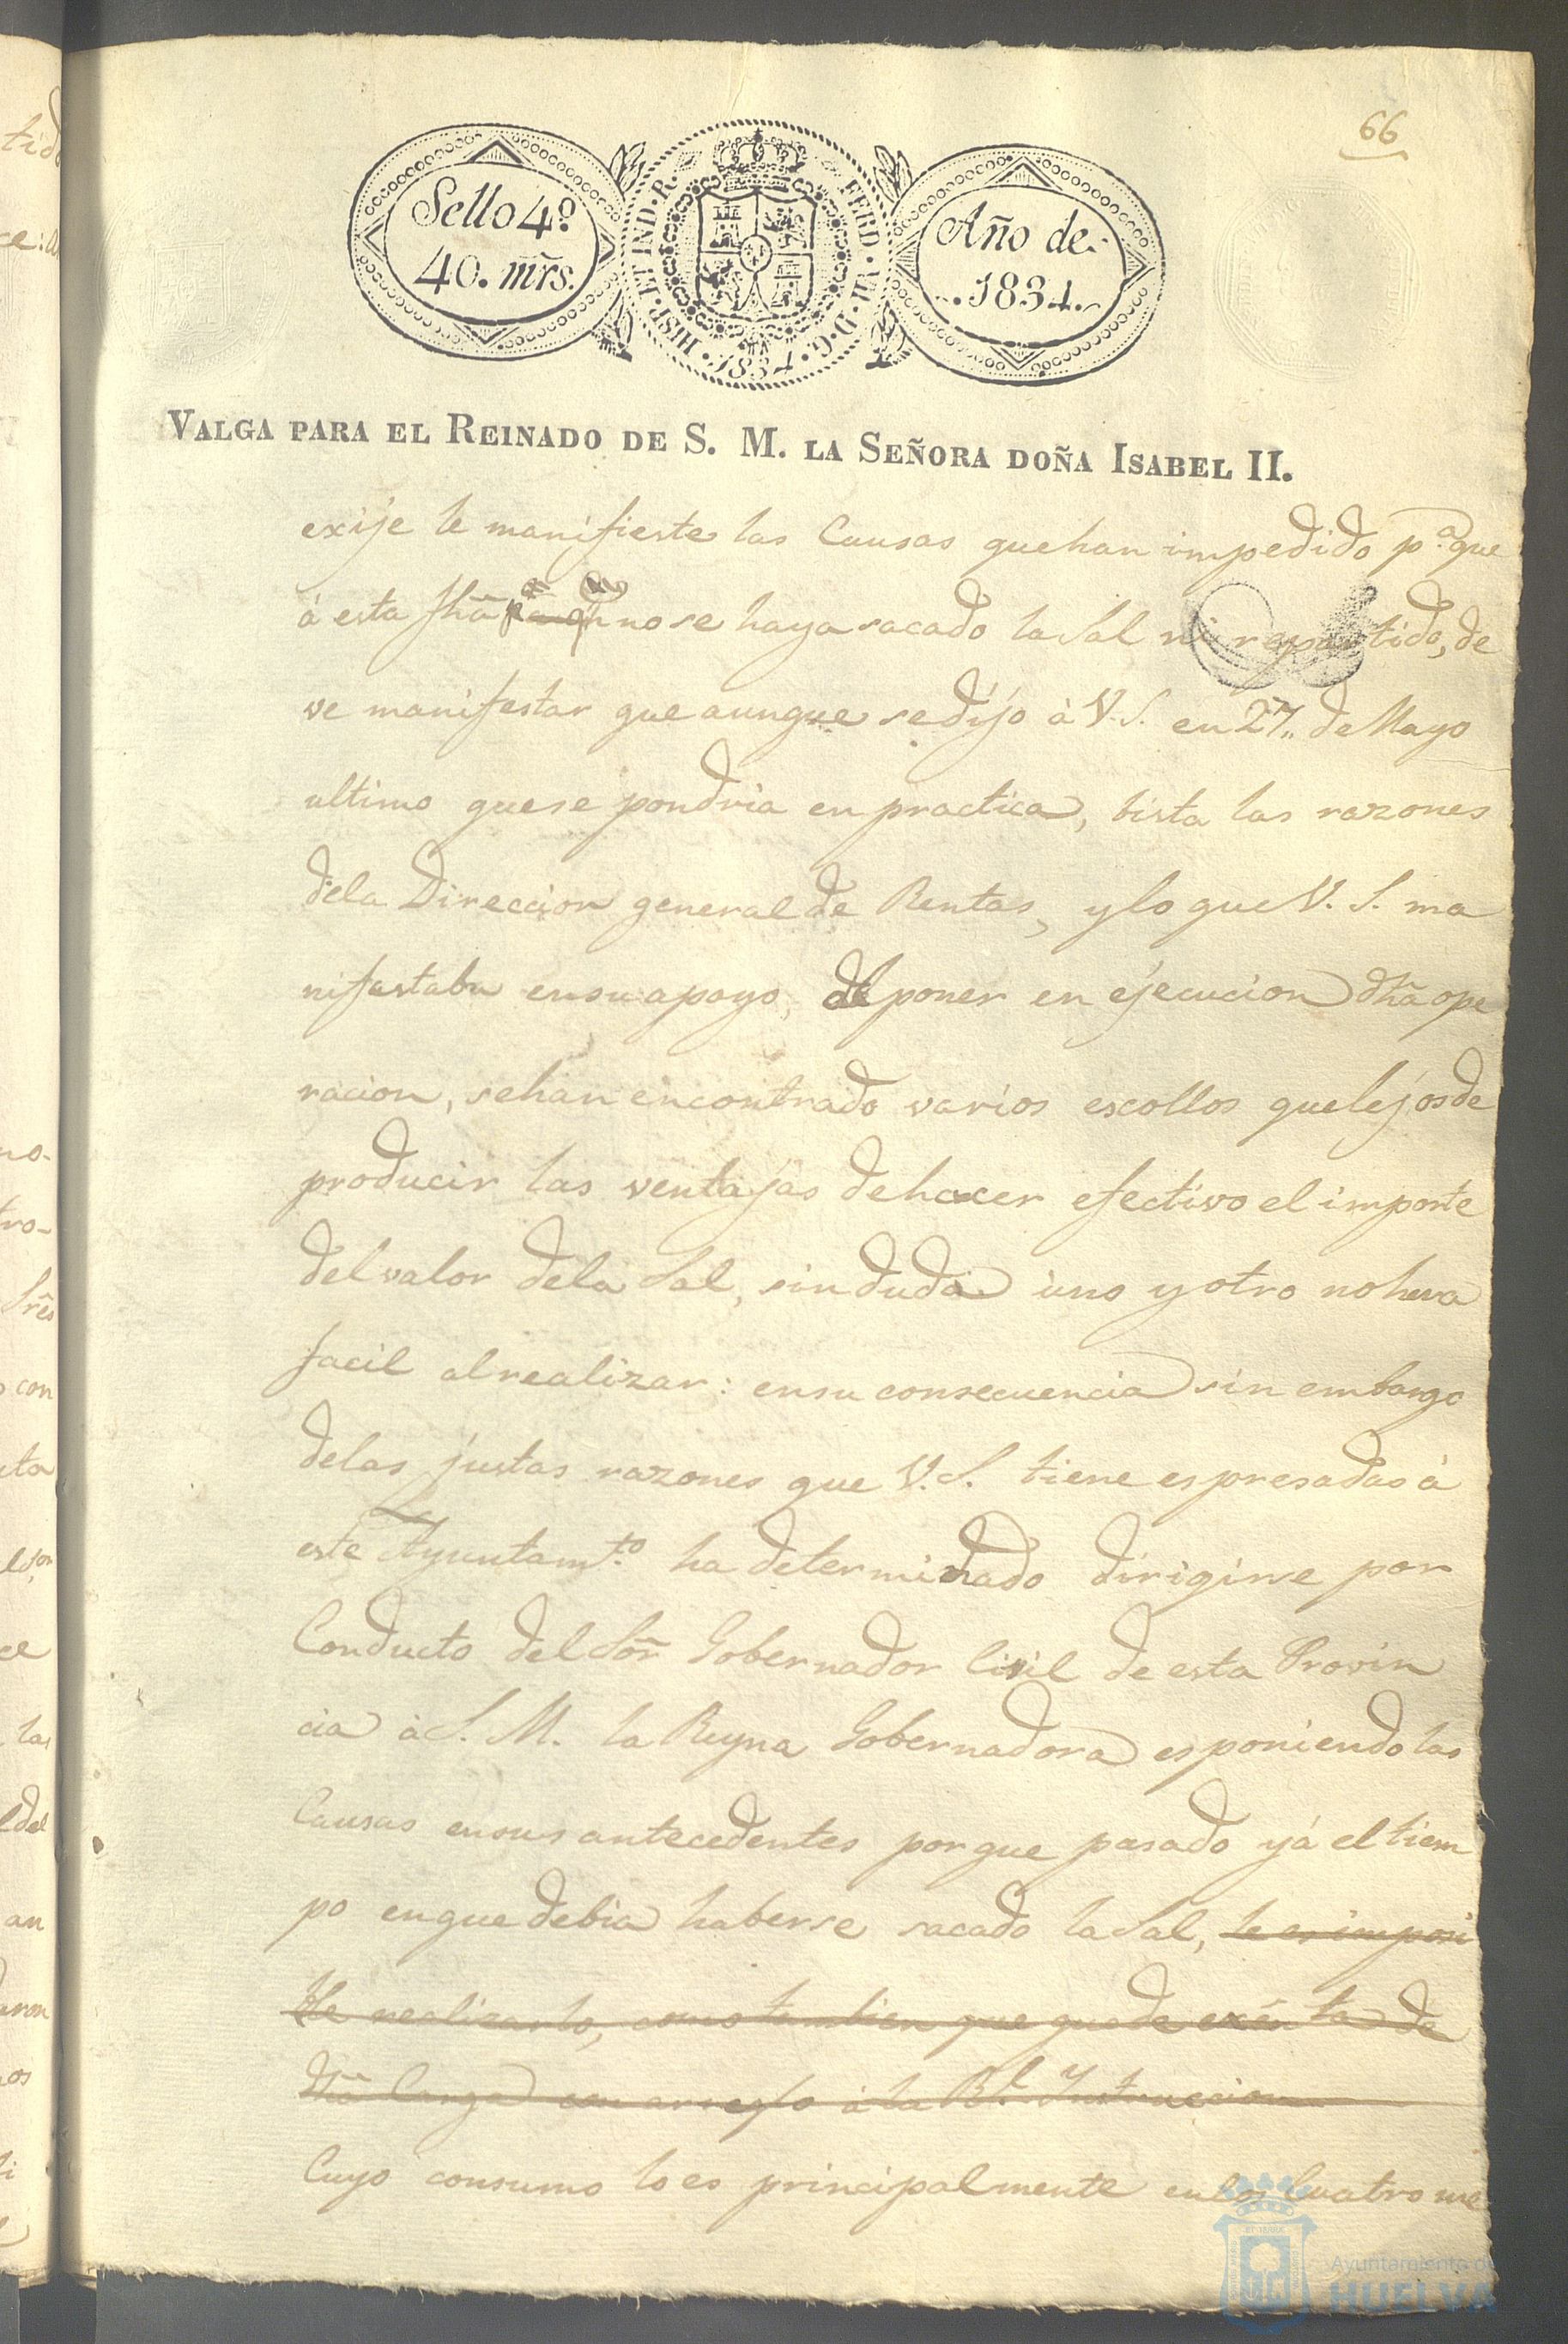 66
Sello 4º
40. mrs.
HISP. ET IND. R.
FERD. VII. D. G.
1834.
Año de
1834.
VALGA PARA EL REINADO DE S. M. LA SEÑORA DOÑA ISABEL II.
exije le manifieste las Causas que han impedido pª que
à esta fhã no se haya sacado la Sal ni repartido, de
ve manifestar que aunque se dijo à V. S. en 27,, de Mayo
ultimo que se pondria en practica, bista las razones
dela Direccion general de Rentas, y lo que V. S. ma
nifestaba en su apoyo, al poner en ejecucion dhã ope
racion, sehan encontrado varios escollos que lejos de
producir las ventajas de hacer efectivo el importe
del valor dela Sal, sin duda uno y otro no hera
facil al realizar: ensu consecuencia sin embargo
delas justas razones que V. S. tiene espresadas à
este Ayuntamtº ha determinado dirigirse por
Conducto del Sõr Gobernador Civil de esta Provin
cia à S. M. la Reyna Gobernadora esponiendo las
Causas ensus antecedentes por que pasado yá el tiem
po enque debia haberse sacado la Sal, le es imposi
ble realizarlo, como tambien que quede exenta de
dhã Carga con arreglo à la Rl. Ynstruccion
Cuyo consumo lo es principalmente en los Cuatro me
Ayuntamiento de
HUELVA